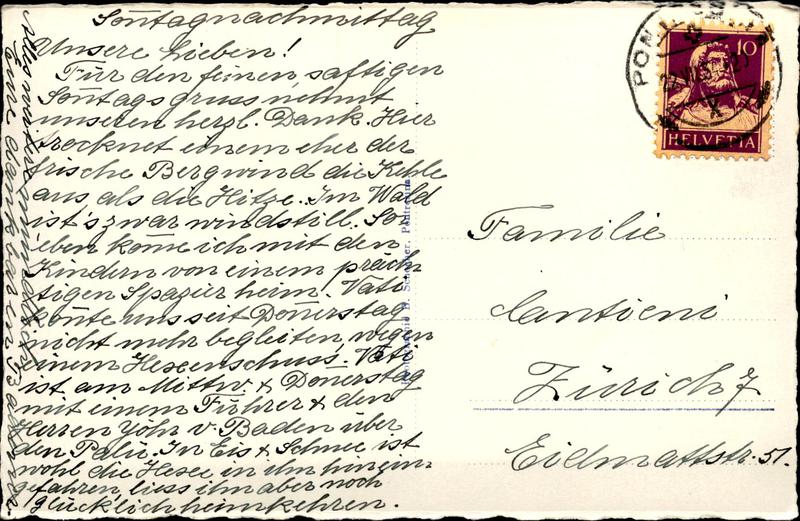 Sontagnachmittag
Unsere Lieben!
Für den feinen, saftigen
Sontagsgruss nehmt
unseren herzl. Dank. Hier
trocknet einem eher der
frische Bergwind die Kehle
aus als die Hitze. Im Wald
ist's zwar windstill. So
eben kome ich mit den
Kindern von einem präch-
tigen Spazier heim. Vati
konte uns seit Donerstag
nicht mehr begleiten wegen
einem Hexenschuss. Vati
ist am Mittw & Donerstag
mit einem Führer & den
Herren Yöhr v Baden über
den Palü. In Eis & Schnee ist
wohl die Hexe in ihm hinein
gefahren, liess ihn aber noch
glücklich heimkehren.
Eure dankbaren
Familie
Cantieni
Zürich 7
Eidmattstr. 51.
PON
10
HELVETIA